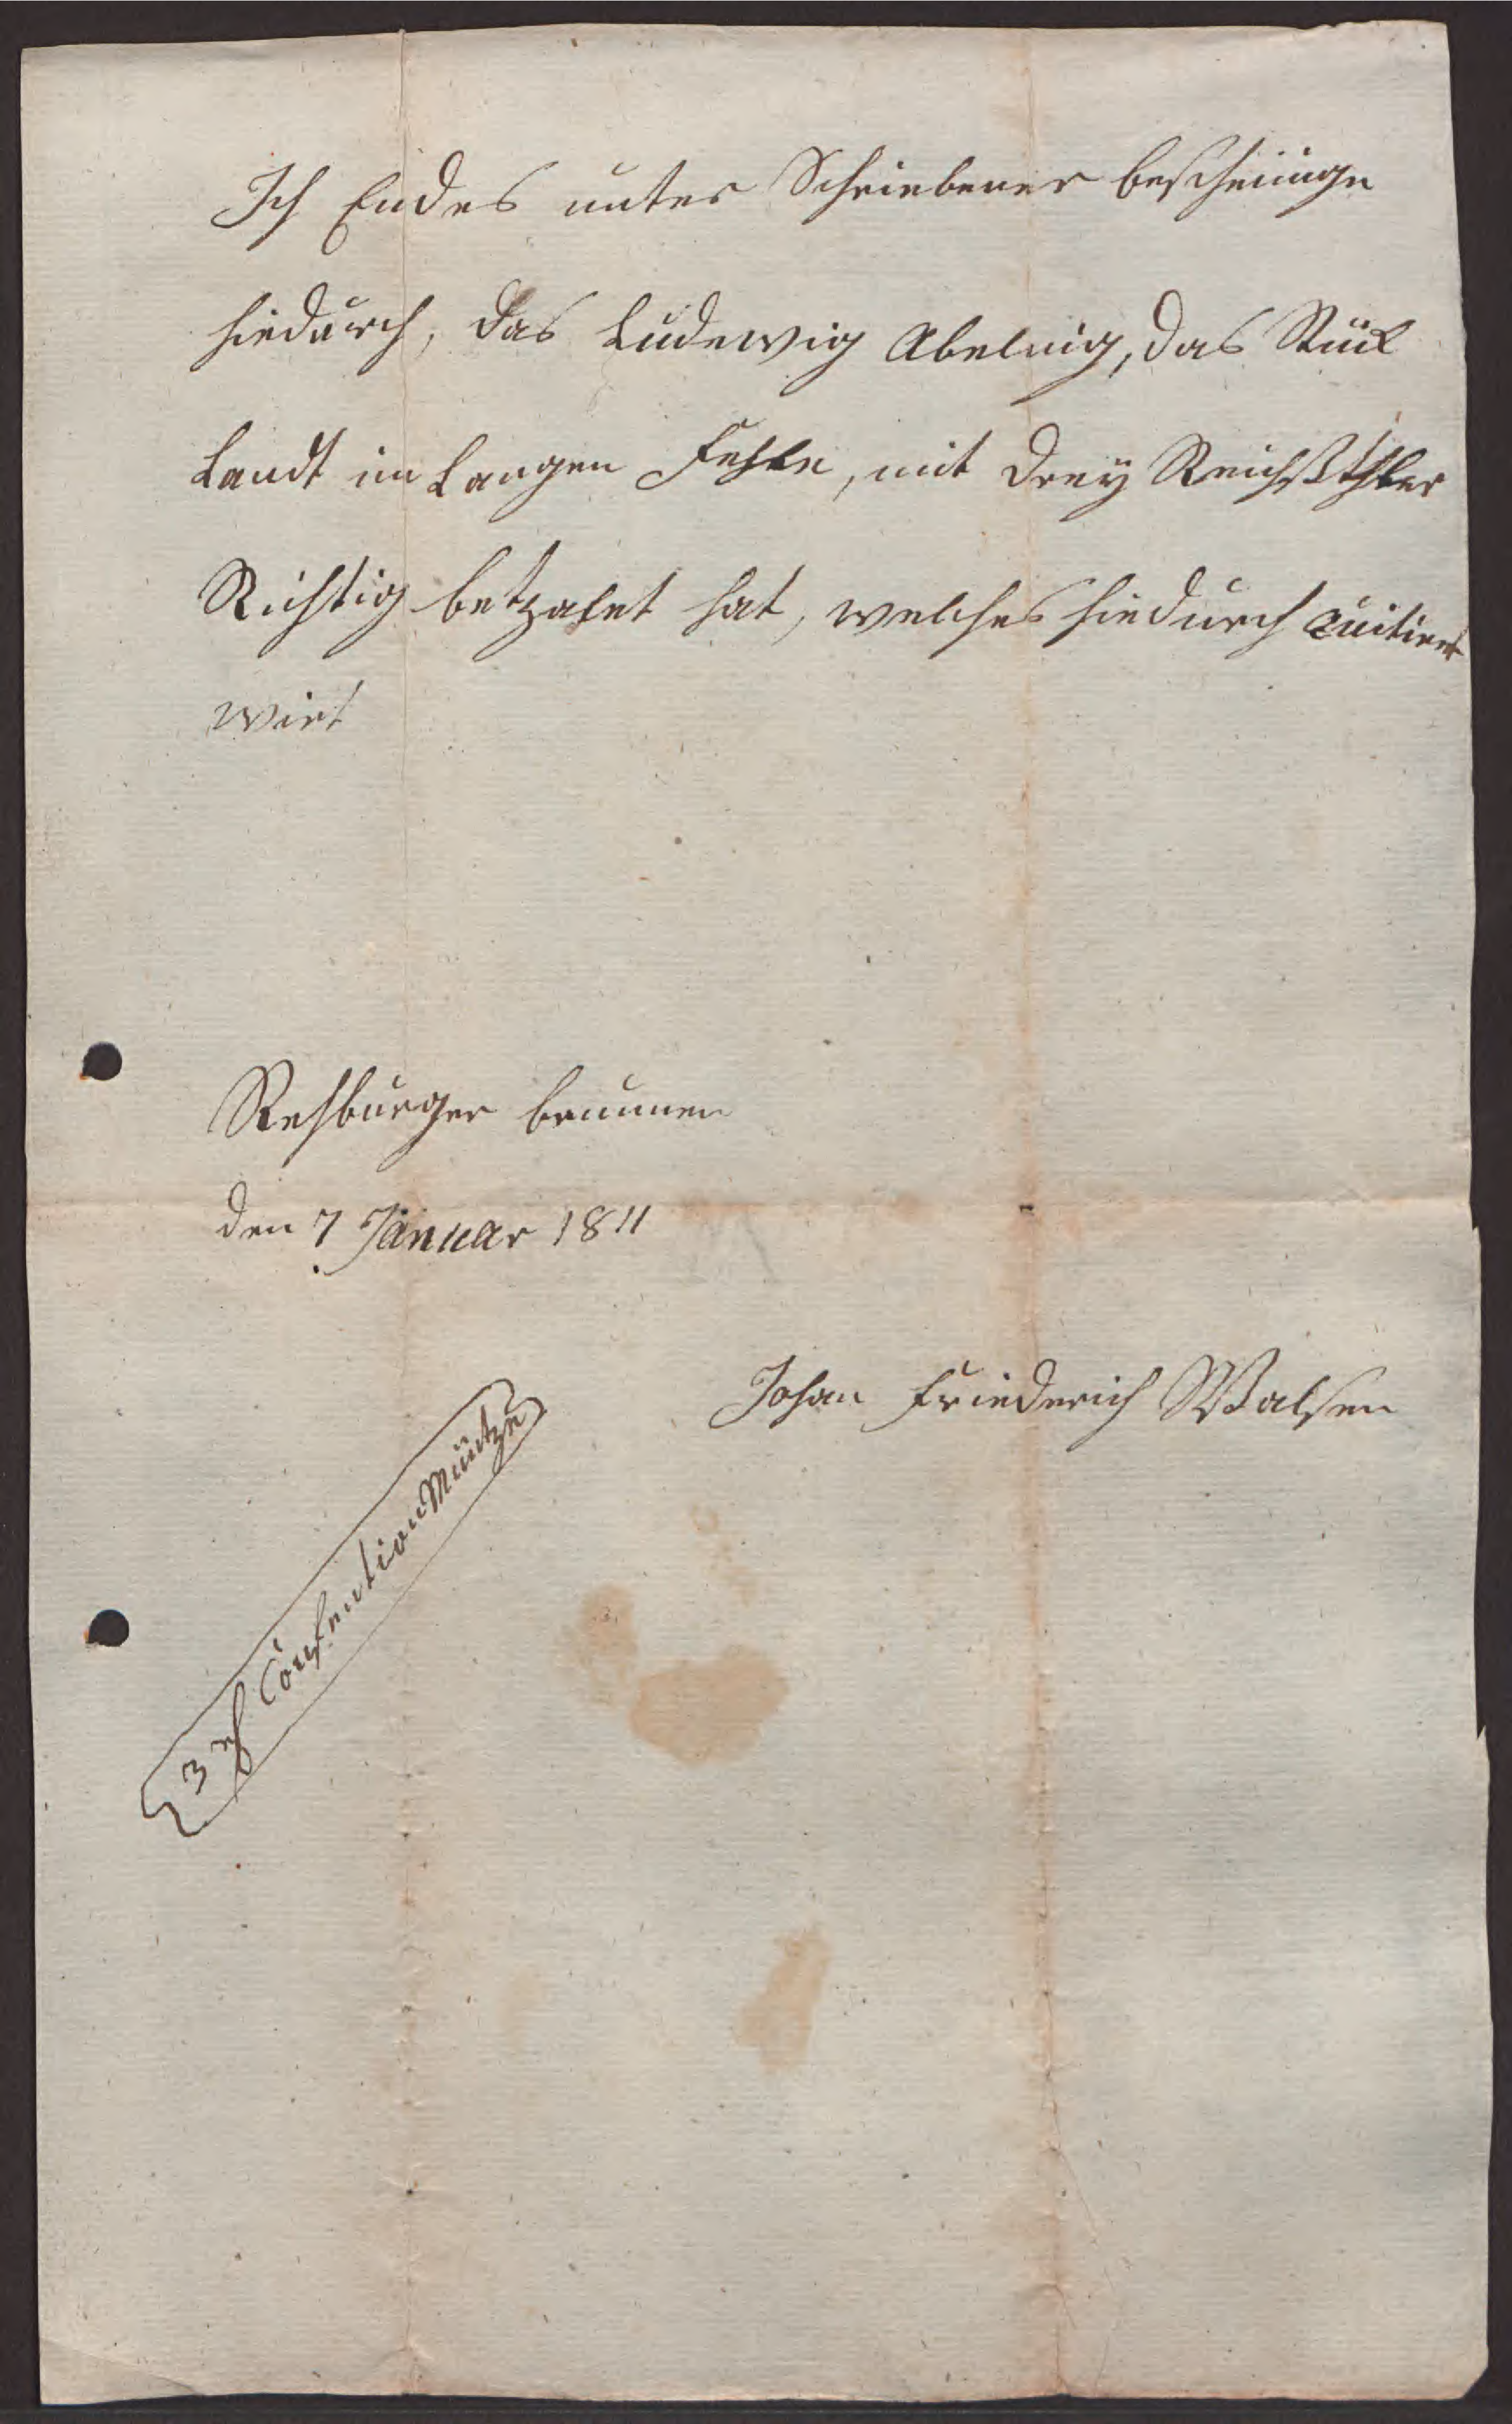 Ich Endes unter Schriebener bescheinige
hiedurch, das Ludewig Abelnig, das Stük
Landt im Langen Fehlde, mit drey Reichßthler
Richtig betzahlt hat, welches hiedurch quitiert
wirt
Rehburger brunnen
den 7 Januar 1811
Johan Friederich Walsen
3 rth Confention Müntze